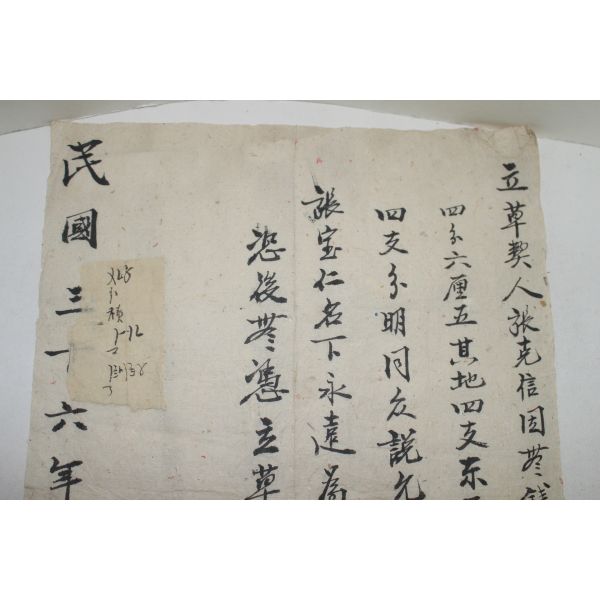 立草契人張克信因無錢
四分六厘五其地四支东
四支分明同众說允
張宝仁名下永遠為
恐後無憑立草
民國三十六年